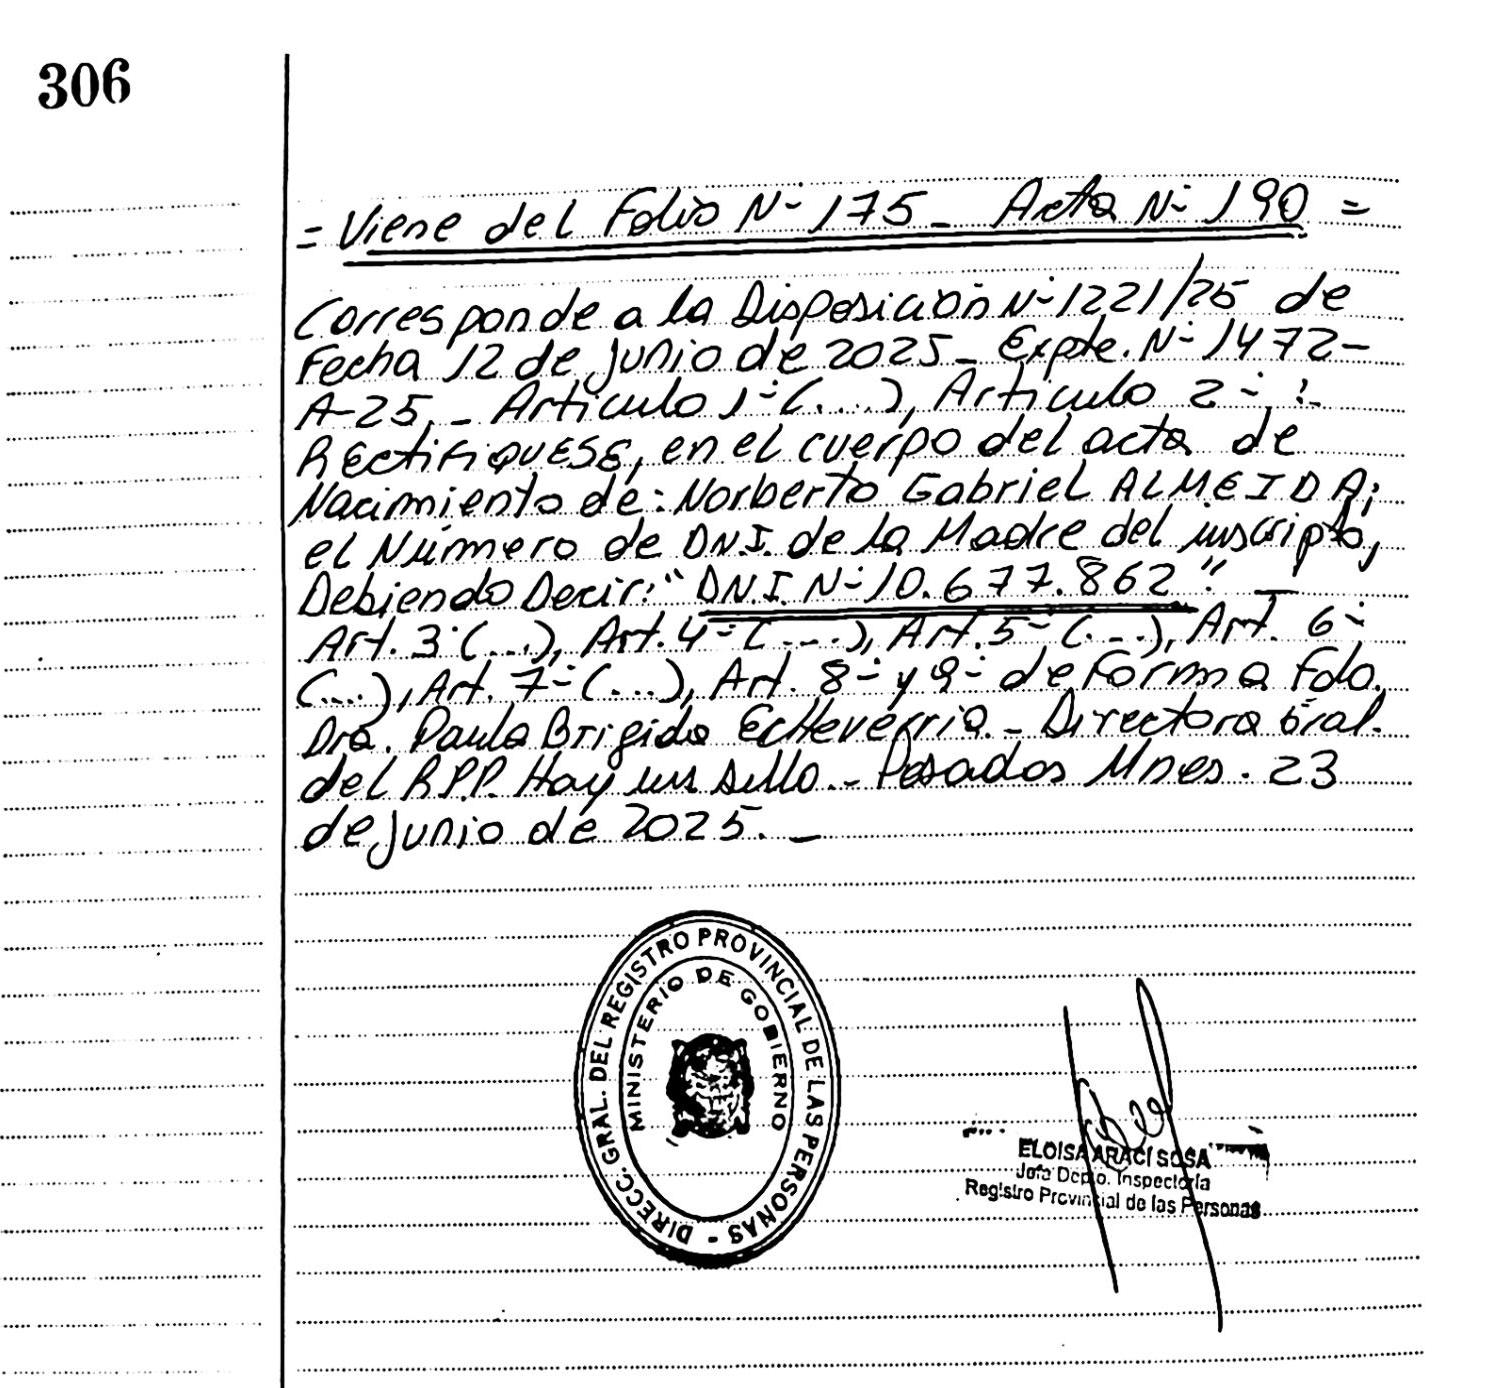 306
= Viene del Folio Nº 175 - Acta Nº 190 =
Corresponde a la Disposición Nº 1221/25 de
Fecha 12 de junio de 2025 - Expte. Nº 1472-
A-25. - Articulo 1º (....), Articulo 2º :-
RECtiFiQUESE, en el cuerpo del acta de
Nacimiento de: Norberto Gabriel ALMEIDA;
el Número de D.N.I. de la Madre del inscripto,
Debiendo Decir: "D.N.I. Nº 10.677.862". -
Art. 3º (...), Art. 4º (....), Art. 5º (...), Art. 6º
(....), Art. 7º (...), Art. 8º y 9º de Forma Fdo.
Dra. Paula Brigida Echeverria. - Directora Gral.
del R.P.P. Hay un sello. - Posadas Mnes. 23
de junio de 2025. -
DIRECC. GRAL. DEL REGISTRO PROVINCIAL DE LAS PERSONAS -
MINISTERIO DE GOBIERNO
ELOISA ARACI SOSA
Jefa Depto. Inspectoría
Registro Provincial de las Personas